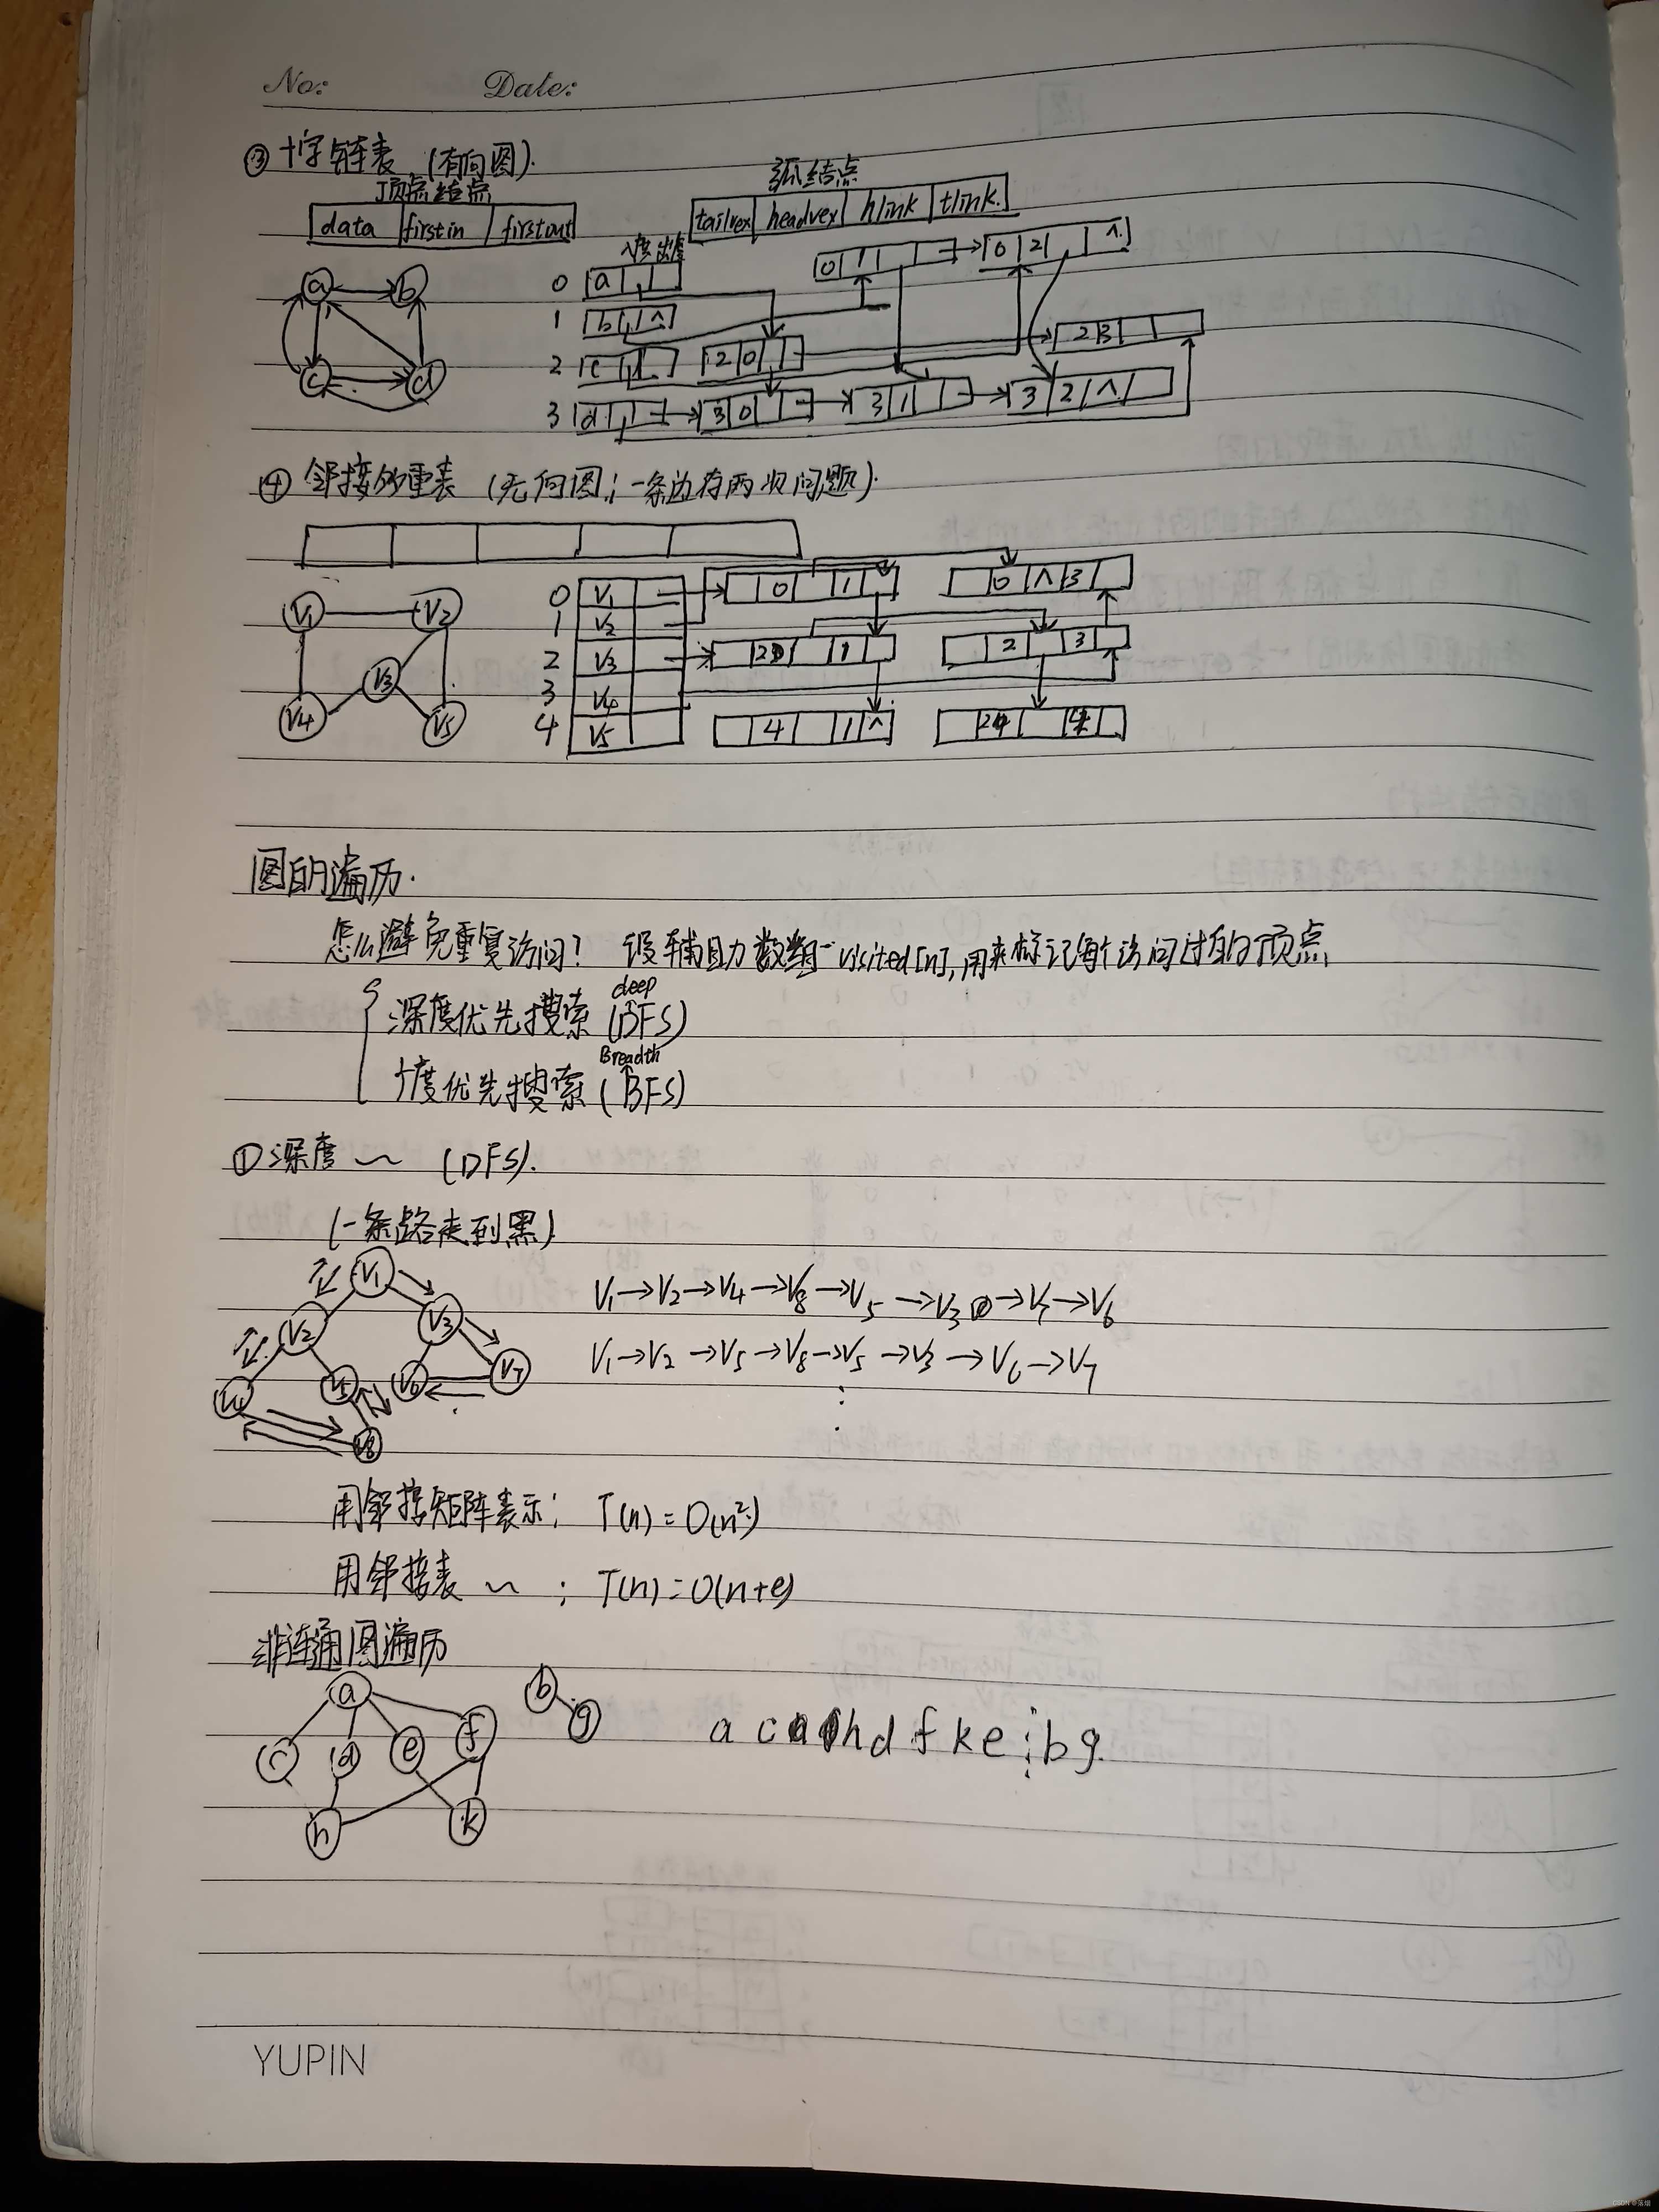 No: Date:
③ 十字链表 (有向图).
顶点结点 弧结点
data firstin firstout tailvex headvex hlink tlink.
入度 出度
a b c d
0 a 0 1 0 2 ∧
1 b ∧
2 c 2 0 2 3
3 d 3 0 3 1 3 2 ∧
④ 邻接多重表 (无向图; 一条边存两次问题).
V1 V2 V3 V4 V5
0 V1 0 1 0 ∧ 3
1 V2
2 V3 2 1 2 3
3 V4
4 V5 4 1 ∧ 2 4
图的遍历.
怎么避免重复访问? 设辅助数组 visited[n], 用来标记每个访问过的顶点
deep
深度优先搜索 (DFS)
Breadth
广度优先搜索 (BFS)
① 深度 ~ (DFS).
(一条路走到黑)
V1 V2 V3 V4 V5 V6 V7 V8
V1→V2→V4→V8→V5→V3→V7→V6
V1→V2→V5→V8→V5→V3→V6→V7
用邻接矩阵表示: T(n)=O(n²)
用邻接表 ~ : T(n)=O(n+e)
非连通图遍历
a b g c d e f h k
a c h d f k e b g
YUPIN
CSDN @落烟